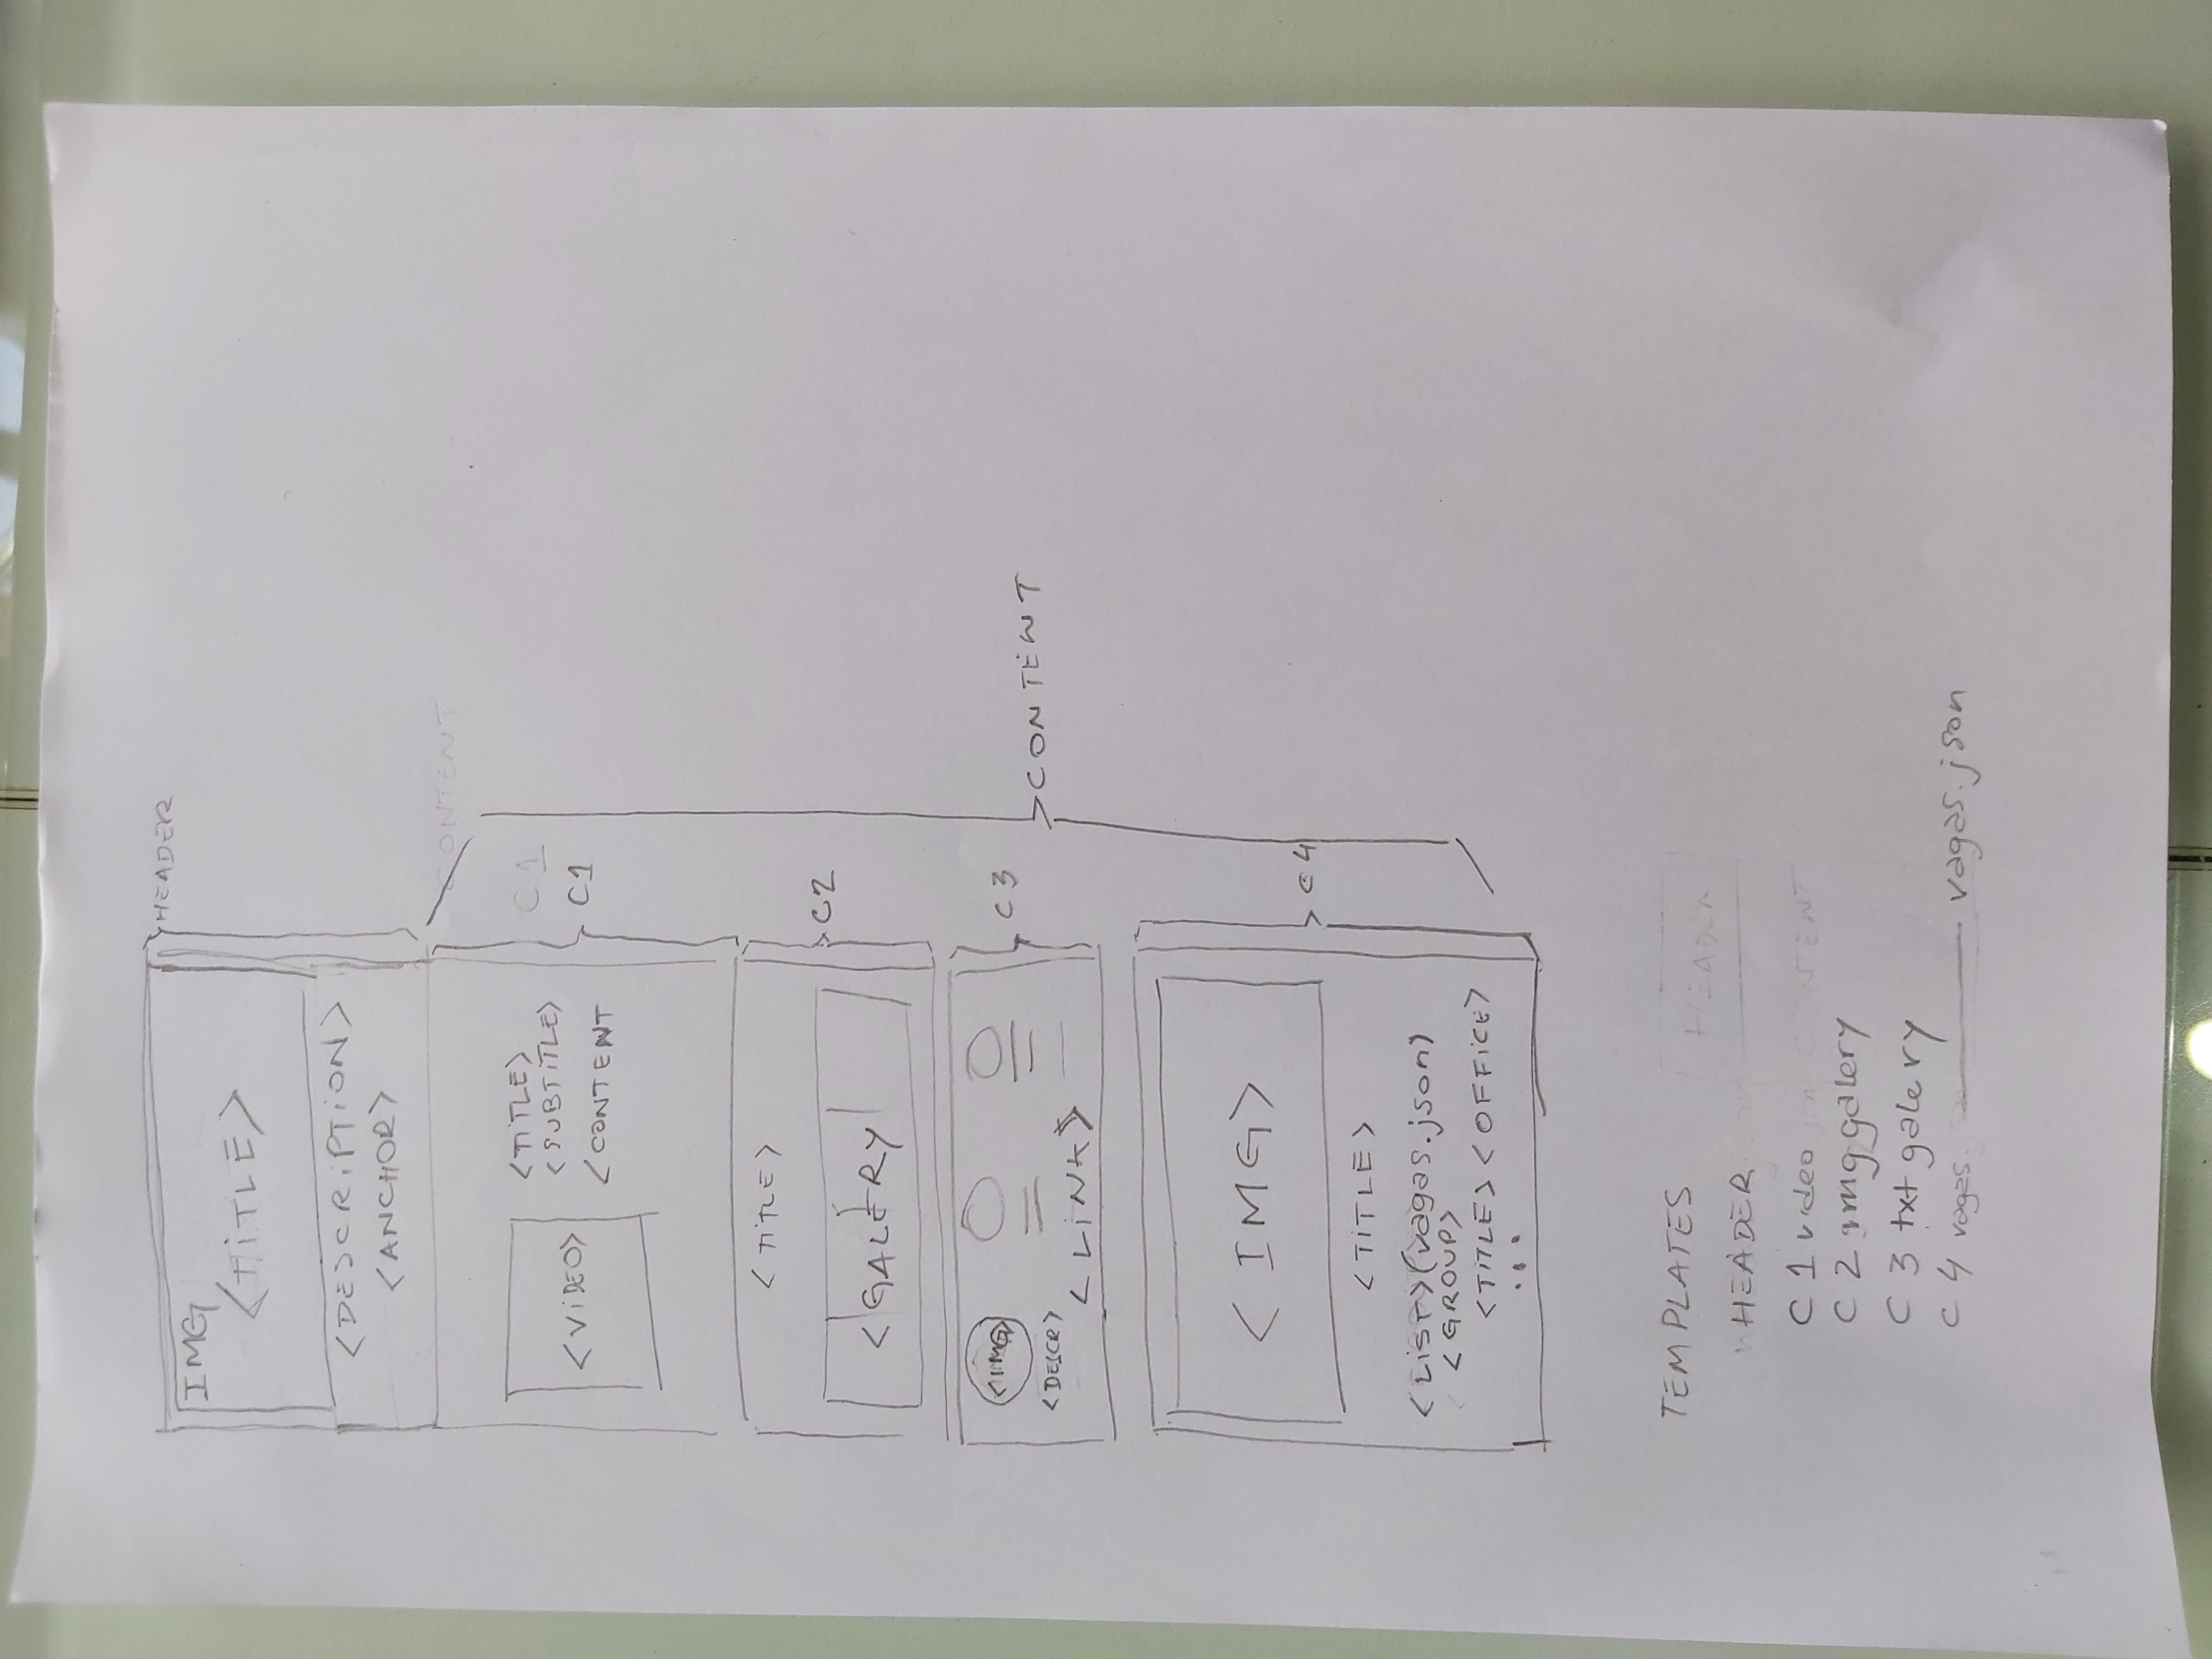 HEADER
IMG
<TITLE>
<DESCRIPTION>
<ANCHOR>
CONTENT
<VIDEO>
<TITLE>
<SUBTITLE>
<CONTENT
C1
C1
<TITLE>
<GALERY
C2
<IMG>
<DESCR>
<LINK>
C3
CONTENT
<IMG>
C4
<TITLE>
<LIST>(vagas.json)
<GROUP>
<TITLE> <OFFICE>
...
TEMPLATES
HEADER
HEADER
C1 video
CONTENT
C2 img galery
C3 txt galery
C4 vagas vagas.json